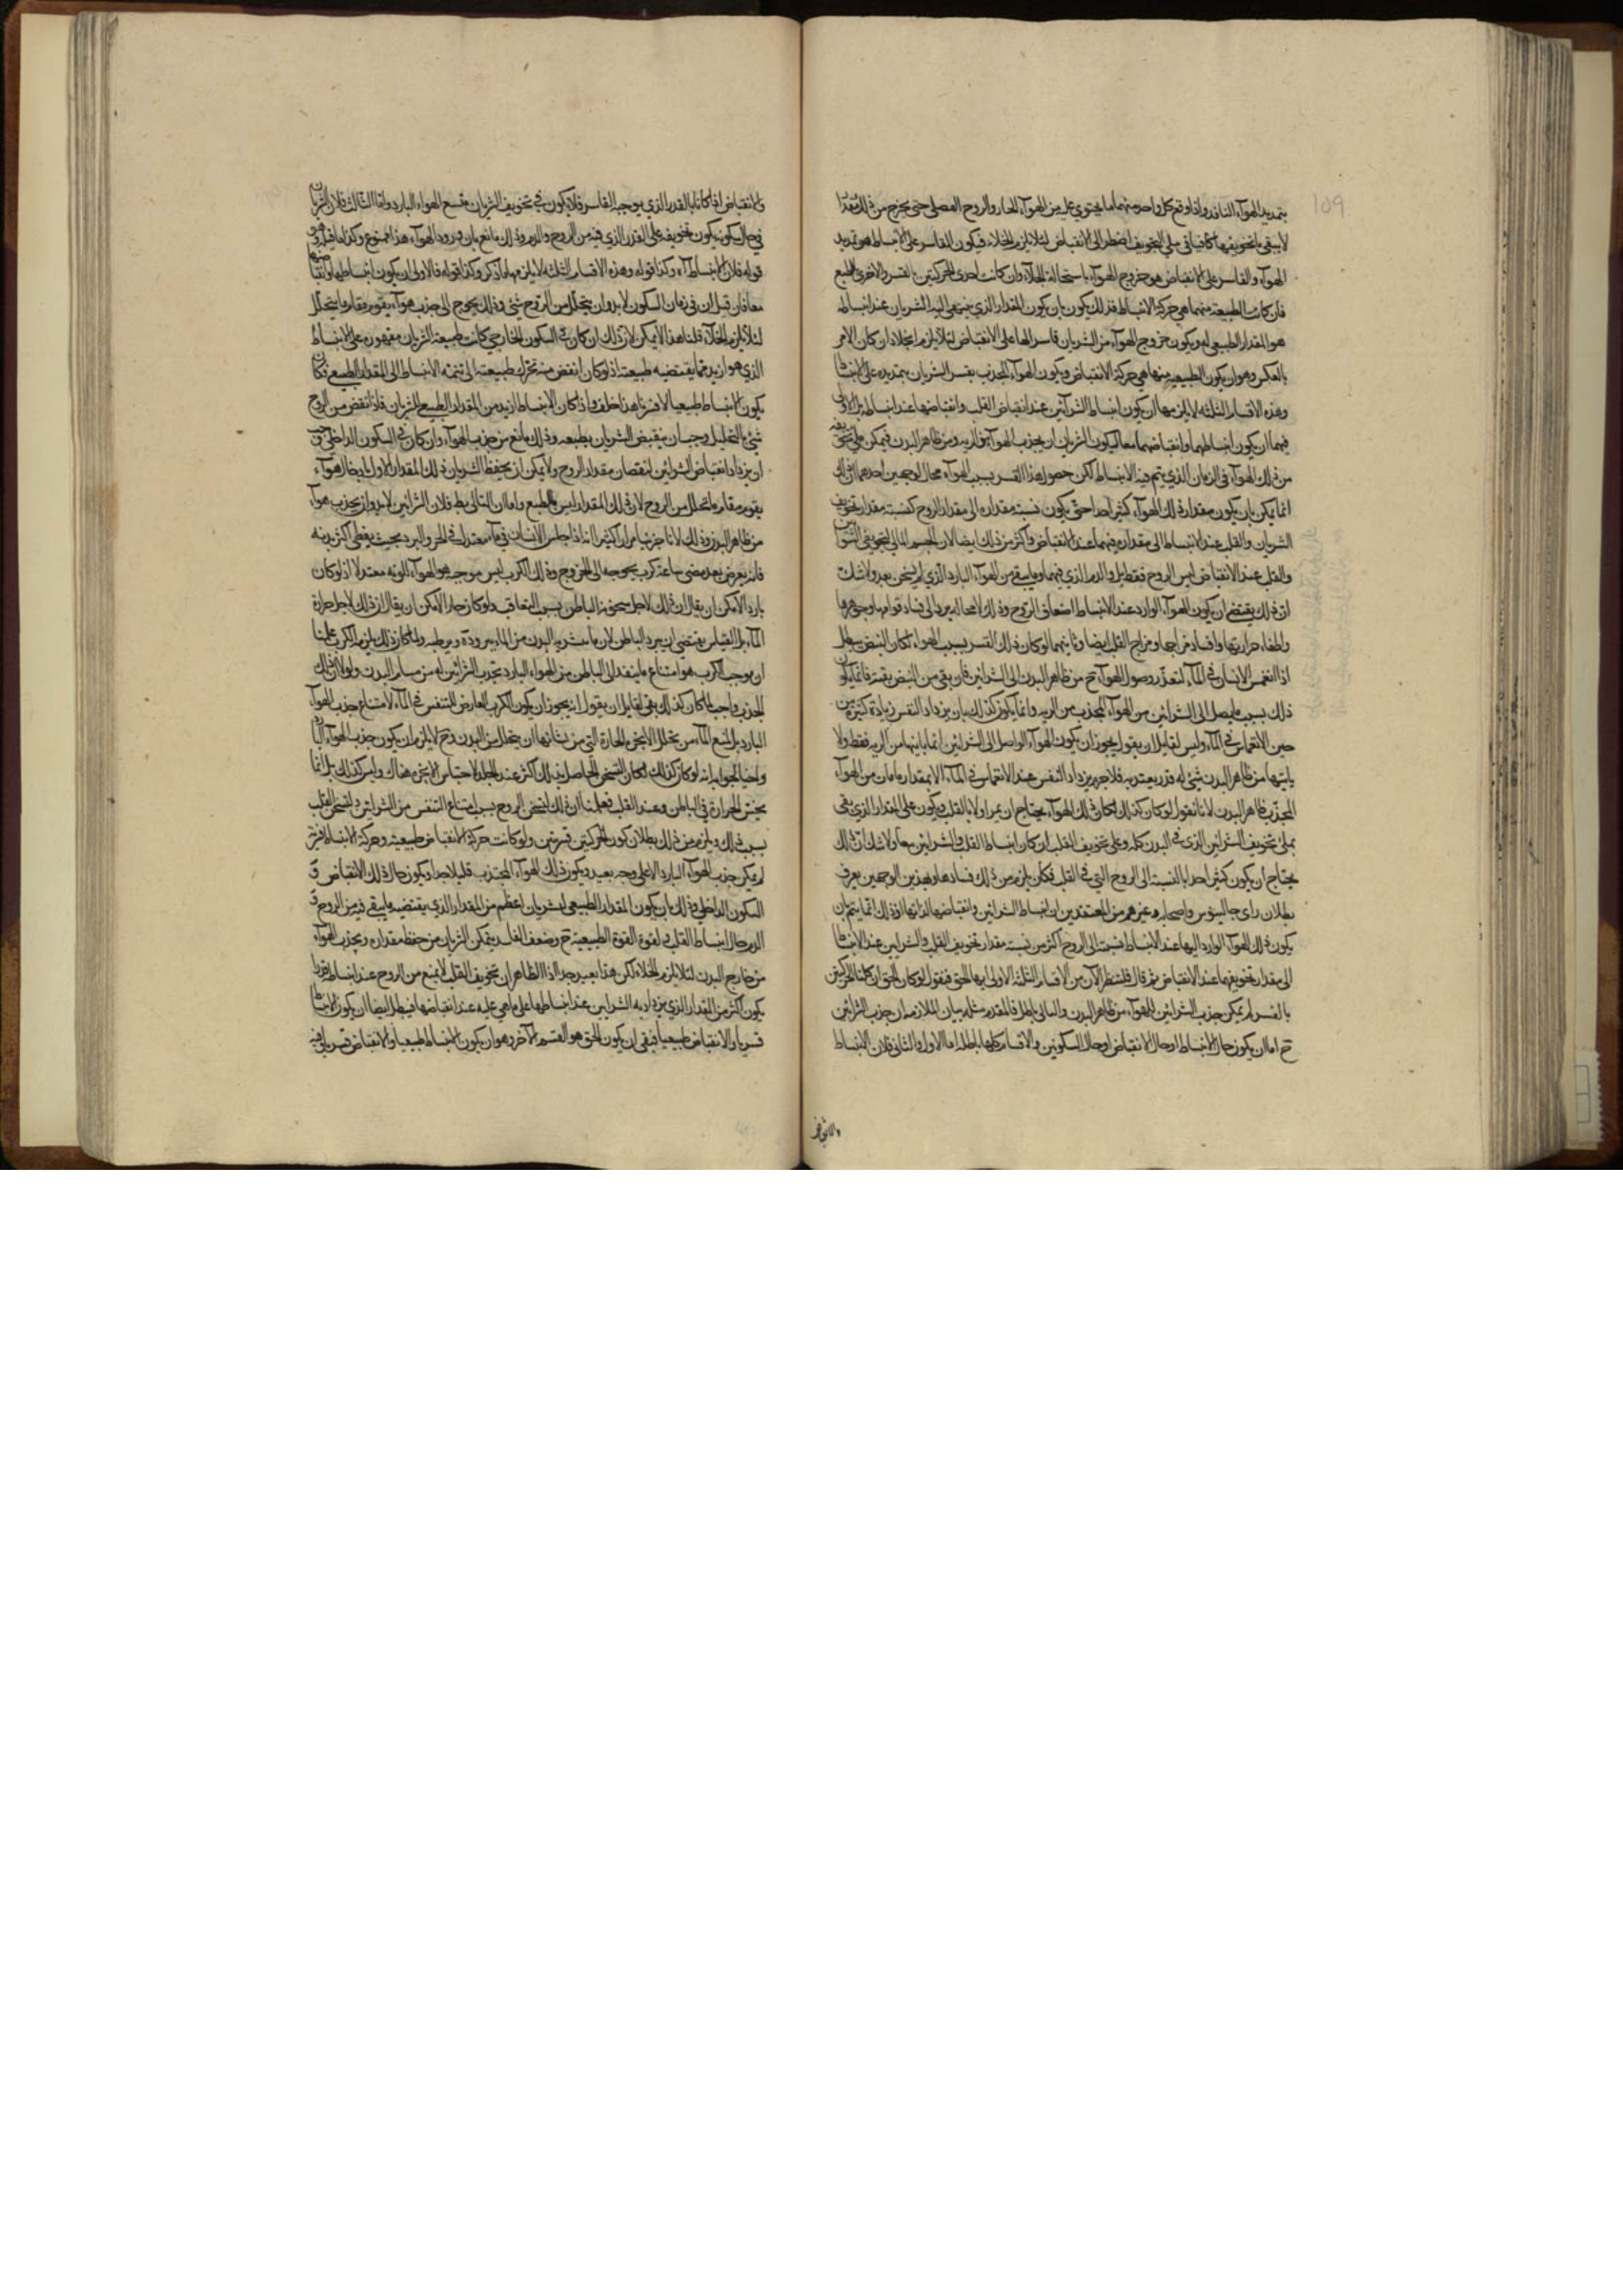 109
بتمديد الهوآء النافذ واذا وقع كل واحد منهما ما يحتوي عليه من الهوآء الحار والروح الفضلي حتى يخرج من ذلك
لا يبقى ما بتجويفيهما كافيا في ملئ التجويف اضطر الى الانقباض لئلا يلزم الخلاء فيكون القاسر على الانبساط هو تمديد
الهوآء والقاسر على الانقباض هو خروج الهوآء باستحالة الخلآء وان كانت احدى الحركتين بالقسر والاخرى بالطبع
فان كانت الطبيعية منهما هي حركة الانبساط فذلك يكون بان يكون المقدار الذي ينتهي اليه الشريان عند انبساطه
هو المقدار الطبيعي له ويكون خروج الهوآء من الشريان قاسر الها على الانقباض لئلا يلزم الخلاء وان كان الامر
بالعكس وهو ان يكون الطبيعية منها هي حركة الانقباض ويكون الهوآء المجذب بقسر الشريان بتمديده على الانبساط
وهذه الاقسام الثلثة لا يلزمها ان يكون انبساط الشرآئين عند انقباض القلب وانقباضها عند انبساطه بل الاولى
فيهما ان يكون انبساطهما وانقباضهما معا ليكون الشريان ان يجذب الهوآء من الرية ومن ظاهر البدن فيمكن
من ذلك الهوآء في الزمان الذي يتم فيه الانبساط لكن حصول هذا القسر بسبب الهوآء محال لوجهين احدهما ان ذلك
انما يمكن بان يكون مقدار ذلك الهوآء كثيرا جدا حتى يكون نسبة مقداره الى مقدار الروح كنسبة مقدار تجويف
الشريان والقلب عند الانبساط الى مقداره فيهما عند الانقباض واكثر من ذلك ايضا لان الجسم المالئ لتجويفي الشريان
والقلب عند الانقباض ليس الروح فقط بل والدم الذي فيهما وما يبقى من الهوآء البارد الذي لم يسخن بعد ولا شك
ان ذلك يقتضي ان يكون الهوآء الوارد عند الانبساط اضعاف الروح وذلك لا محالة يؤدي الى فساد قوامها وجوهرها
واطفاء حرارتها وافساد مزاجها ومزاج القلب ايضا وثانيهما لو كان ذلك القسر بسبب الهواء لكان النبض يبطل
اذا انغمس الانسان في المآء لتعذر وصول الهوآء ح من ظاهر البدن الى الشرائين فان بقي من النبض بقية فانما يكون
ذلك بسبب ما يصل الى الشرائين من الهوآء المجذب من الرية وانما يكون كذلك بان يزداد النفس زيادة كثيرة
حين الانغماس في المآء وليس لقايل ان يقول يجوز ان يكون الهوآء الواصل الى الشرائين انما ياتيها من الرية فقط ولا
ياتيها من ظاهر البدن شئ له قدر يعتد به فلا جرم يزداد النفس عند الانغماس في المآء الا بمقدار ما فات من الهوآء
المجذب بظاهر البدن لانا نقول لو كان كذلك لكان ذلك الهوآء يحتاج ان يمر اولا بالقلب ويكون على المقدار الذي يفي
بملئ تجويف الشرائين الذي في البدن كله وعلى تجويف القلب ان كان انبساط القلب والشرائين معا ولا شك ان ذلك
يحتاج ان يكون كثيرا جدا بالنسبة الى الروح التي في القلب فكان يلزم من ذلك فسادها وبهذين الوجهين يعرف
بطلان راي جالينوس واصحابه وغيرهم من المعتقدين ان انبساط الشرائين وانقباضها لذاتها اذ ذلك انما يتم بان
يكون ذلك الهوآء الوارد اليها عند الانبساط نسبته الى الروح اكثر من نسبة مقدار تجويف القلب والشرائين عند الانبساط
الى مقدار تجويفها عند الانقباض ثم قال فلننظر الان من الاقسام الثلثة الاولى ايها الحق فنقول لو كان الحق ان كلتا الحركتين
بالقسر لم يمكن جذب الشرائين للهوآء من ظاهر البدن والتالي باطل فالمقدم مثله بيان الملازمة ان جذب الشرائين
ح اما ان يكون حال الانبساط او حال الانقباض او حال السكونين والاقسام كلها باطلة اما الاول والثاني فلان الانبساط
والانقباض
والانقباض اذا كانا بالقدر الذي يوجبه القاسر فلا يكون في تجويف الشريان متسع للهواء البارد واما الثالث فلان الشريان
في حال سكونه يكون تجويفه على القدر الذي فيه من الروح والدم وذلك مانع بان ورود الهوآء هذا ممنوع وكذا ما قبله وهو
قوله فلان الانبساط آه وكذا قوله وهذه الاقسام الثلثة لا يلزمها ما ذكر وكذا قوله فالاولى ان يكون انبساطها وانقباضها
معا فان قيل ان في زمان السكون لا بد وان يتحلل من الروح شئ وذلك يحوج الى جذب هوآء يقوم مقام ما يتحلل
لئلا يلزم الخلآء قلنا هذا لا يمكن لان ذلك ان كان في السكون الخارجي كانت طبيعة الشريان مقهورة على الانبساط
الذي هو ازيد مما يقتضيه طبيعته اذ لو كان انقص منه تحرك طبيعته الى تتمة الانبساط الى المقدار الطبيعي فكان
يكون الانبساط طبيعيا لا قسريا هذا خلف واذا كان الانبساط ازيد من المقدار الطبيعي للشريان فاذا نقص من الروح
شئ بالتحليل وجب ان ينقبض الشريان بطبعه وذلك مانع من جذب الهوآء وان كان في السكون الداخلي وجب
ان يزداد انقباض الشرائين لنقصان مقدار الروح ولا يمكن ان يحفظ الشريان ذلك المقدار الاول بادخال هوآء
يقوم مقام ما تحلل من الروح لان ذلك المقدار ليس بالطبع واما ان التالي باطل فلان الشرائين لا بد وان يجذب هوآء
من ظاهر البدن وذلك لانا جربنا مرارا كثيرا انه اذا جلس الانسان في مآء معتدل في الحر والبرد بحيث يغطي اكثر بدنه
فانه يعرض بعد مضي ساعة كرب يحوجه الى الخروج وذلك الكرب ليس موجبه هو الهوآء لكونه معتدلا اذ لو كان
باردا لامكن ان يقال ان ذلك لاجل سخونة الباطن بسبب التعاقب ولو كان حارا لامكن ان يقال ان ذلك لاجل حرارة
المآء بل القياس يقتضي ان يبرد الباطن لان ما يشربه البدن من المآء يبرده ويرطبه ولما كان ذلك يلزمه الكرب علمنا
ان موجب الكرب هو امتناع ما ينفذ الى الباطن من الهواء البارد بجذب الشرائين له من مسام البدن ولولا ان ذلك
الجذب واجب لما كان كذلك بقي لقايل ان يقول انه يجوز ان يكون الكرب العارض للتنفس في المآء لا لامتناع جذب الهوآء
البارد بل لمنع المآء من تحلل الابخرة الحارة التي من شانها ان يتحلل من البدن وح لا يلزم ان يكون جذب الهوآء البارد
واجبا لجوابه انه لو كان كذلك لكان التسخن الحاصل بذلك اكثر عند الجلد لاحتباس الابخرة هناك وليس كذلك بل انما
يحس الحرارة في الباطن وعند القلب فعلمنا ان ذلك لتسخن الروح بسبب امتناع التنفس من الشرائين وتسخن القلب
بسبب ذلك ويلزم من ذلك بطلان كون الحركتين قسريتين ولو كانت حركة الانقباض طبيعية وحركة الانبساط قسرية
لم يمكن جذب الهوآء البارد الا على وجه بعيد ويكون ذلك الهوآء المجتذب قليلا جدا ويكون حال ذلك الانقباض
السكون الداخل وذلك بان يكون المقدار الطبيعي للشريان اعظم من المقدار الذي يقتضيه ما يبقى فيه من الروح
الدم حال انبساط القلب ولقوة القوة الطبيعية ح وضعف القلب يتمكن الشريان من حفظ مقداره ويجذب الهوآء
من خارج البدن لئلا يلزم الخلاء لكن هذا بعيد جدا اذ الظاهر ان تجويف القلب لا يمنع من الروح عند انبساطه قدرا
يكون اكثر من المقدار الذي يزداد به الشرايين عند انبساطها على ما هي عليه عند انقباضها فيبطل ايضا ان يكون الانبساط
قسريا والانقباض طبيعيا فبقى ان يكون الحق هو القسم الآخر وهو ان يكون الانبساط طبيعيا والانقباض قسريا